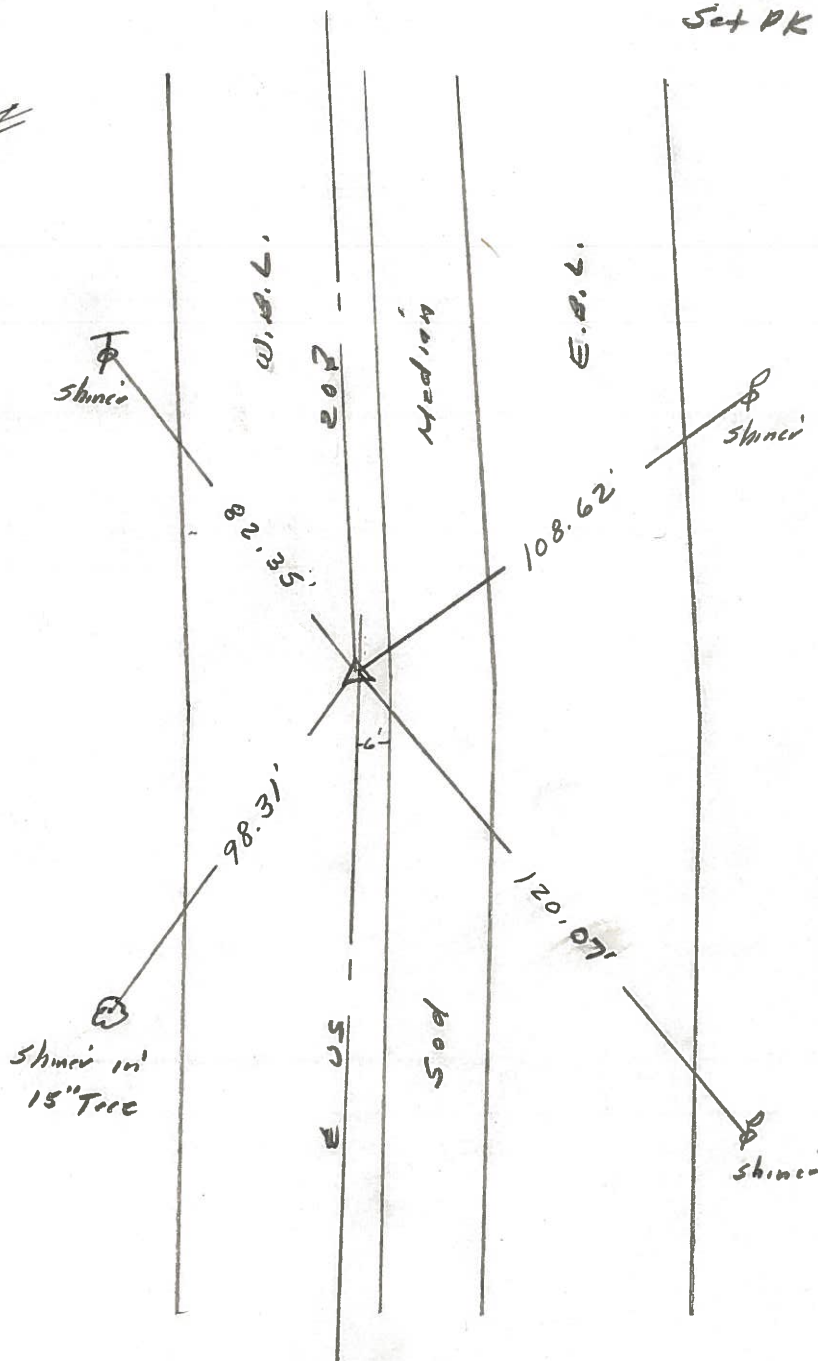 Set PK
W.B.L.
E.B.L.
Median
shiner
shiner
82.35'
108.62'
6'
98.31'
120.07'
US
Sod
shiner in
15" Tree
shiner